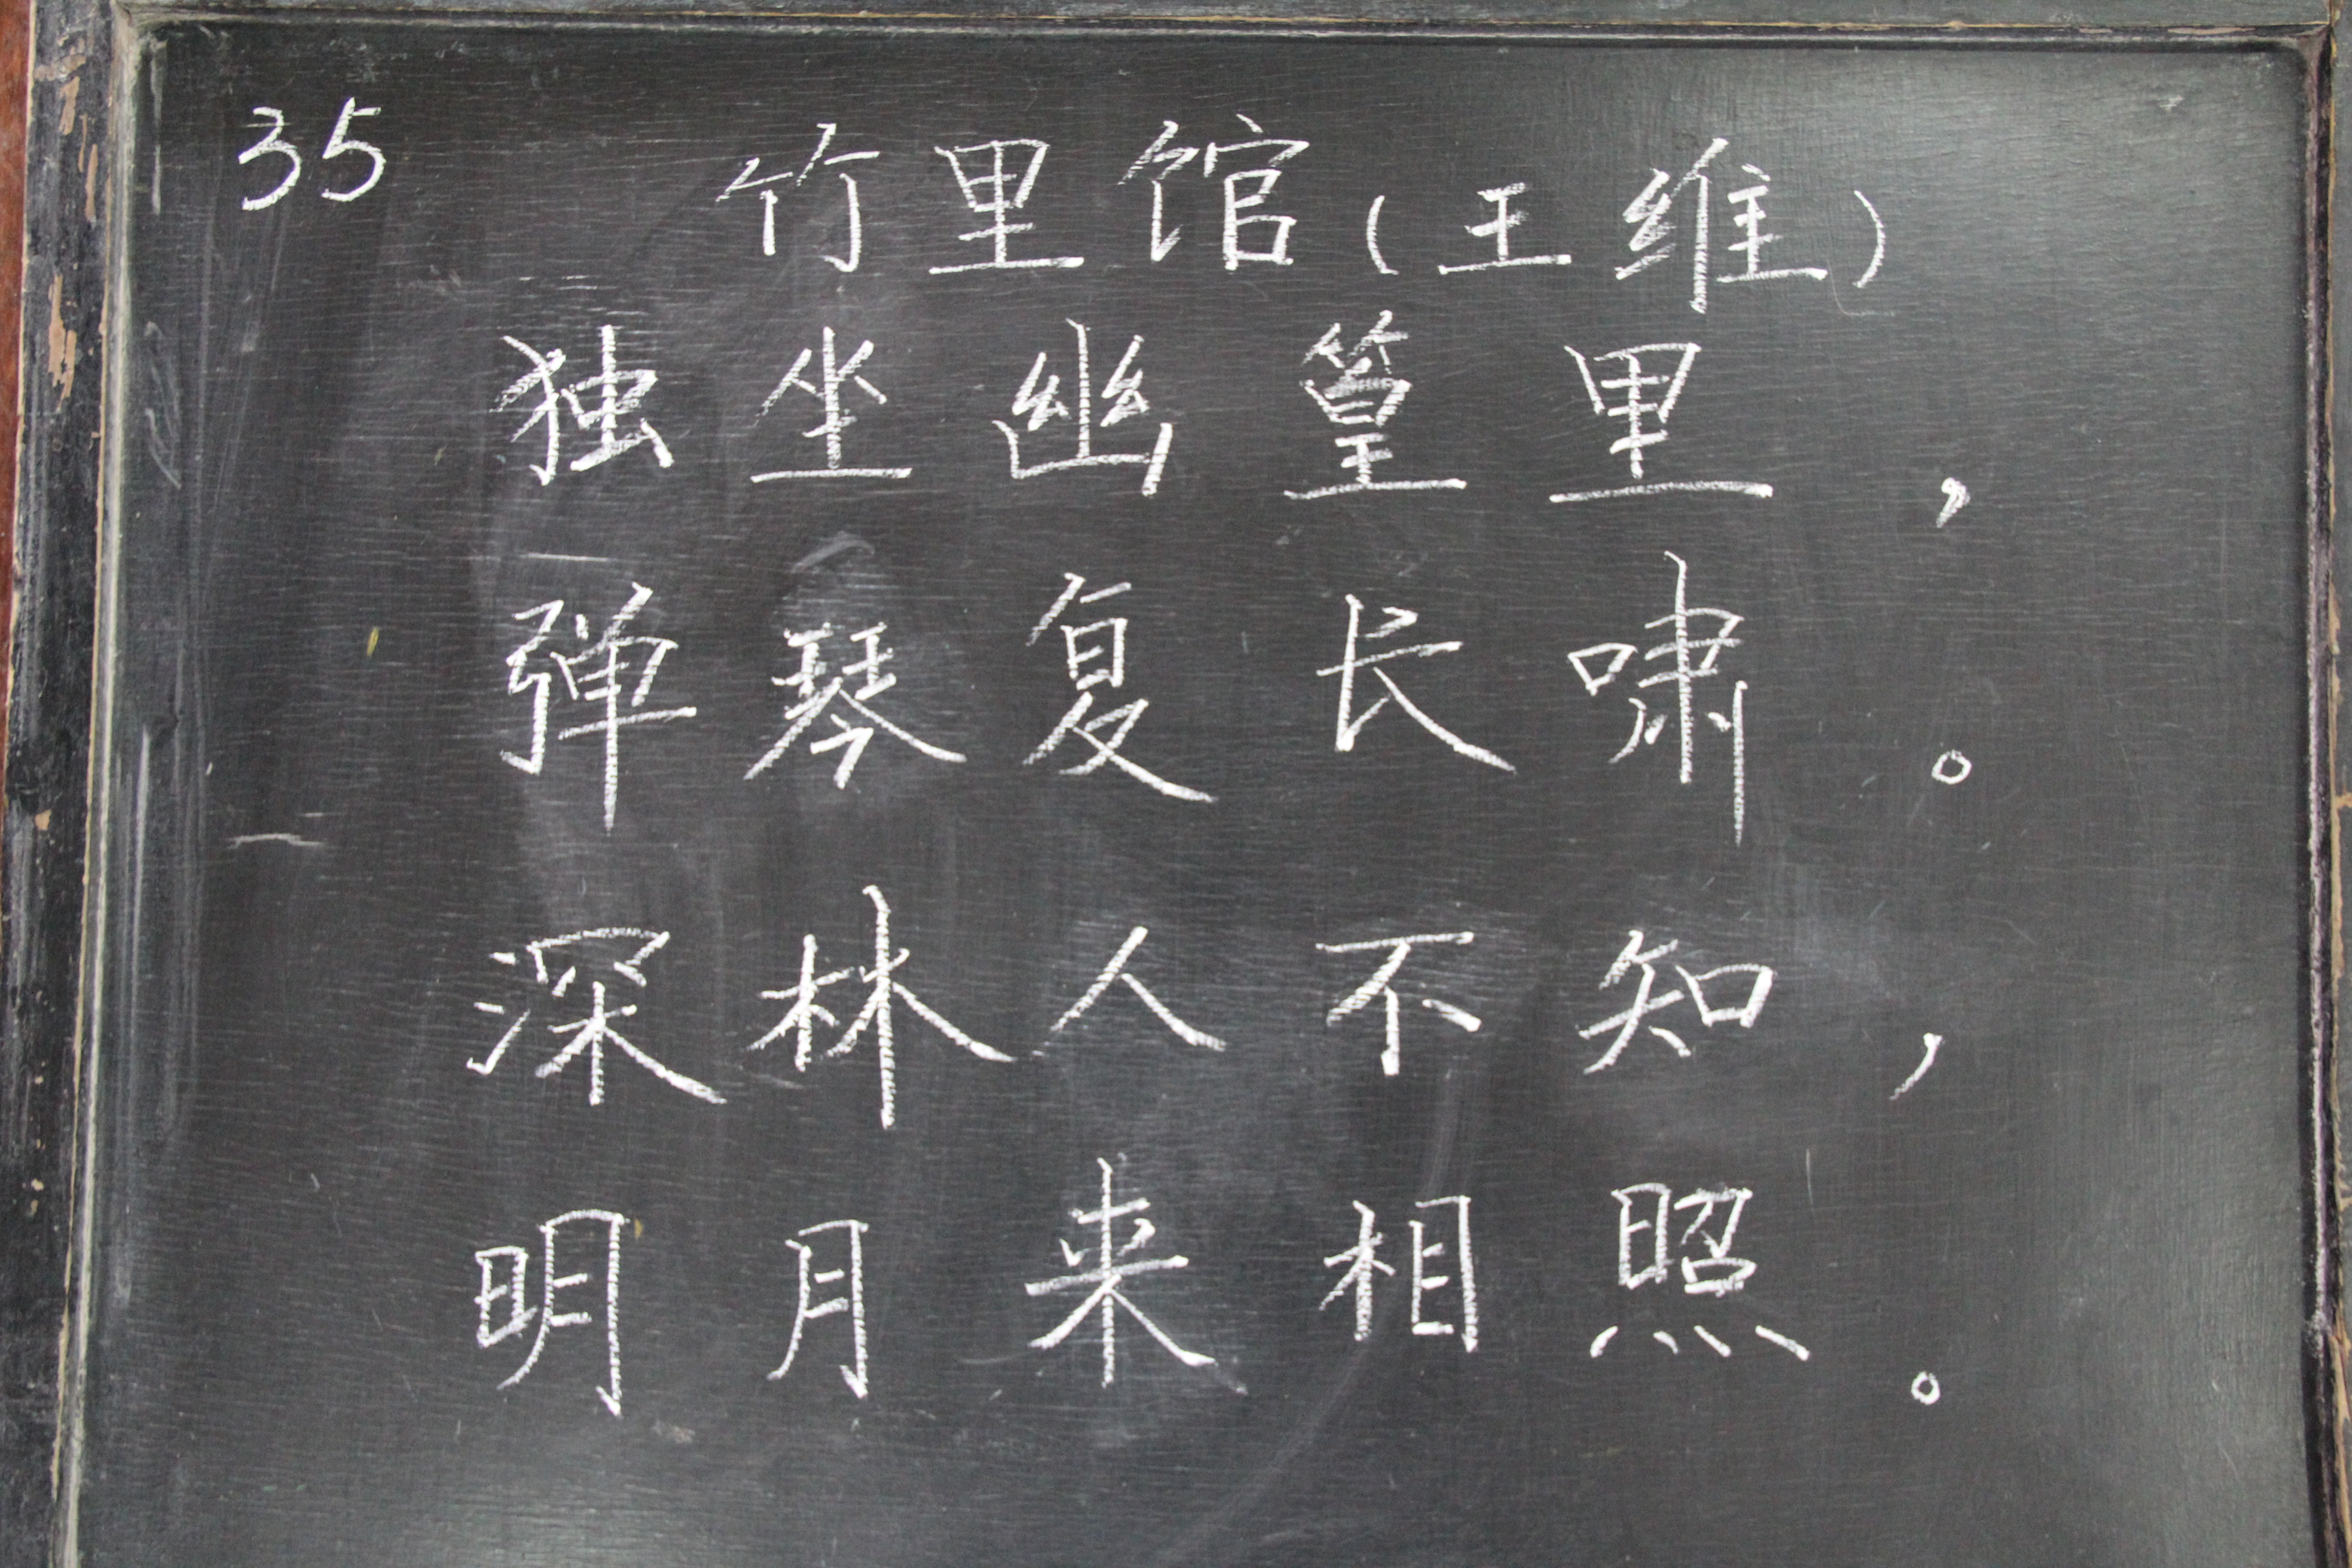 35 竹里馆(王维)
独坐幽篁里,
弹琴复长啸。
深林人不知,
明月来相照。